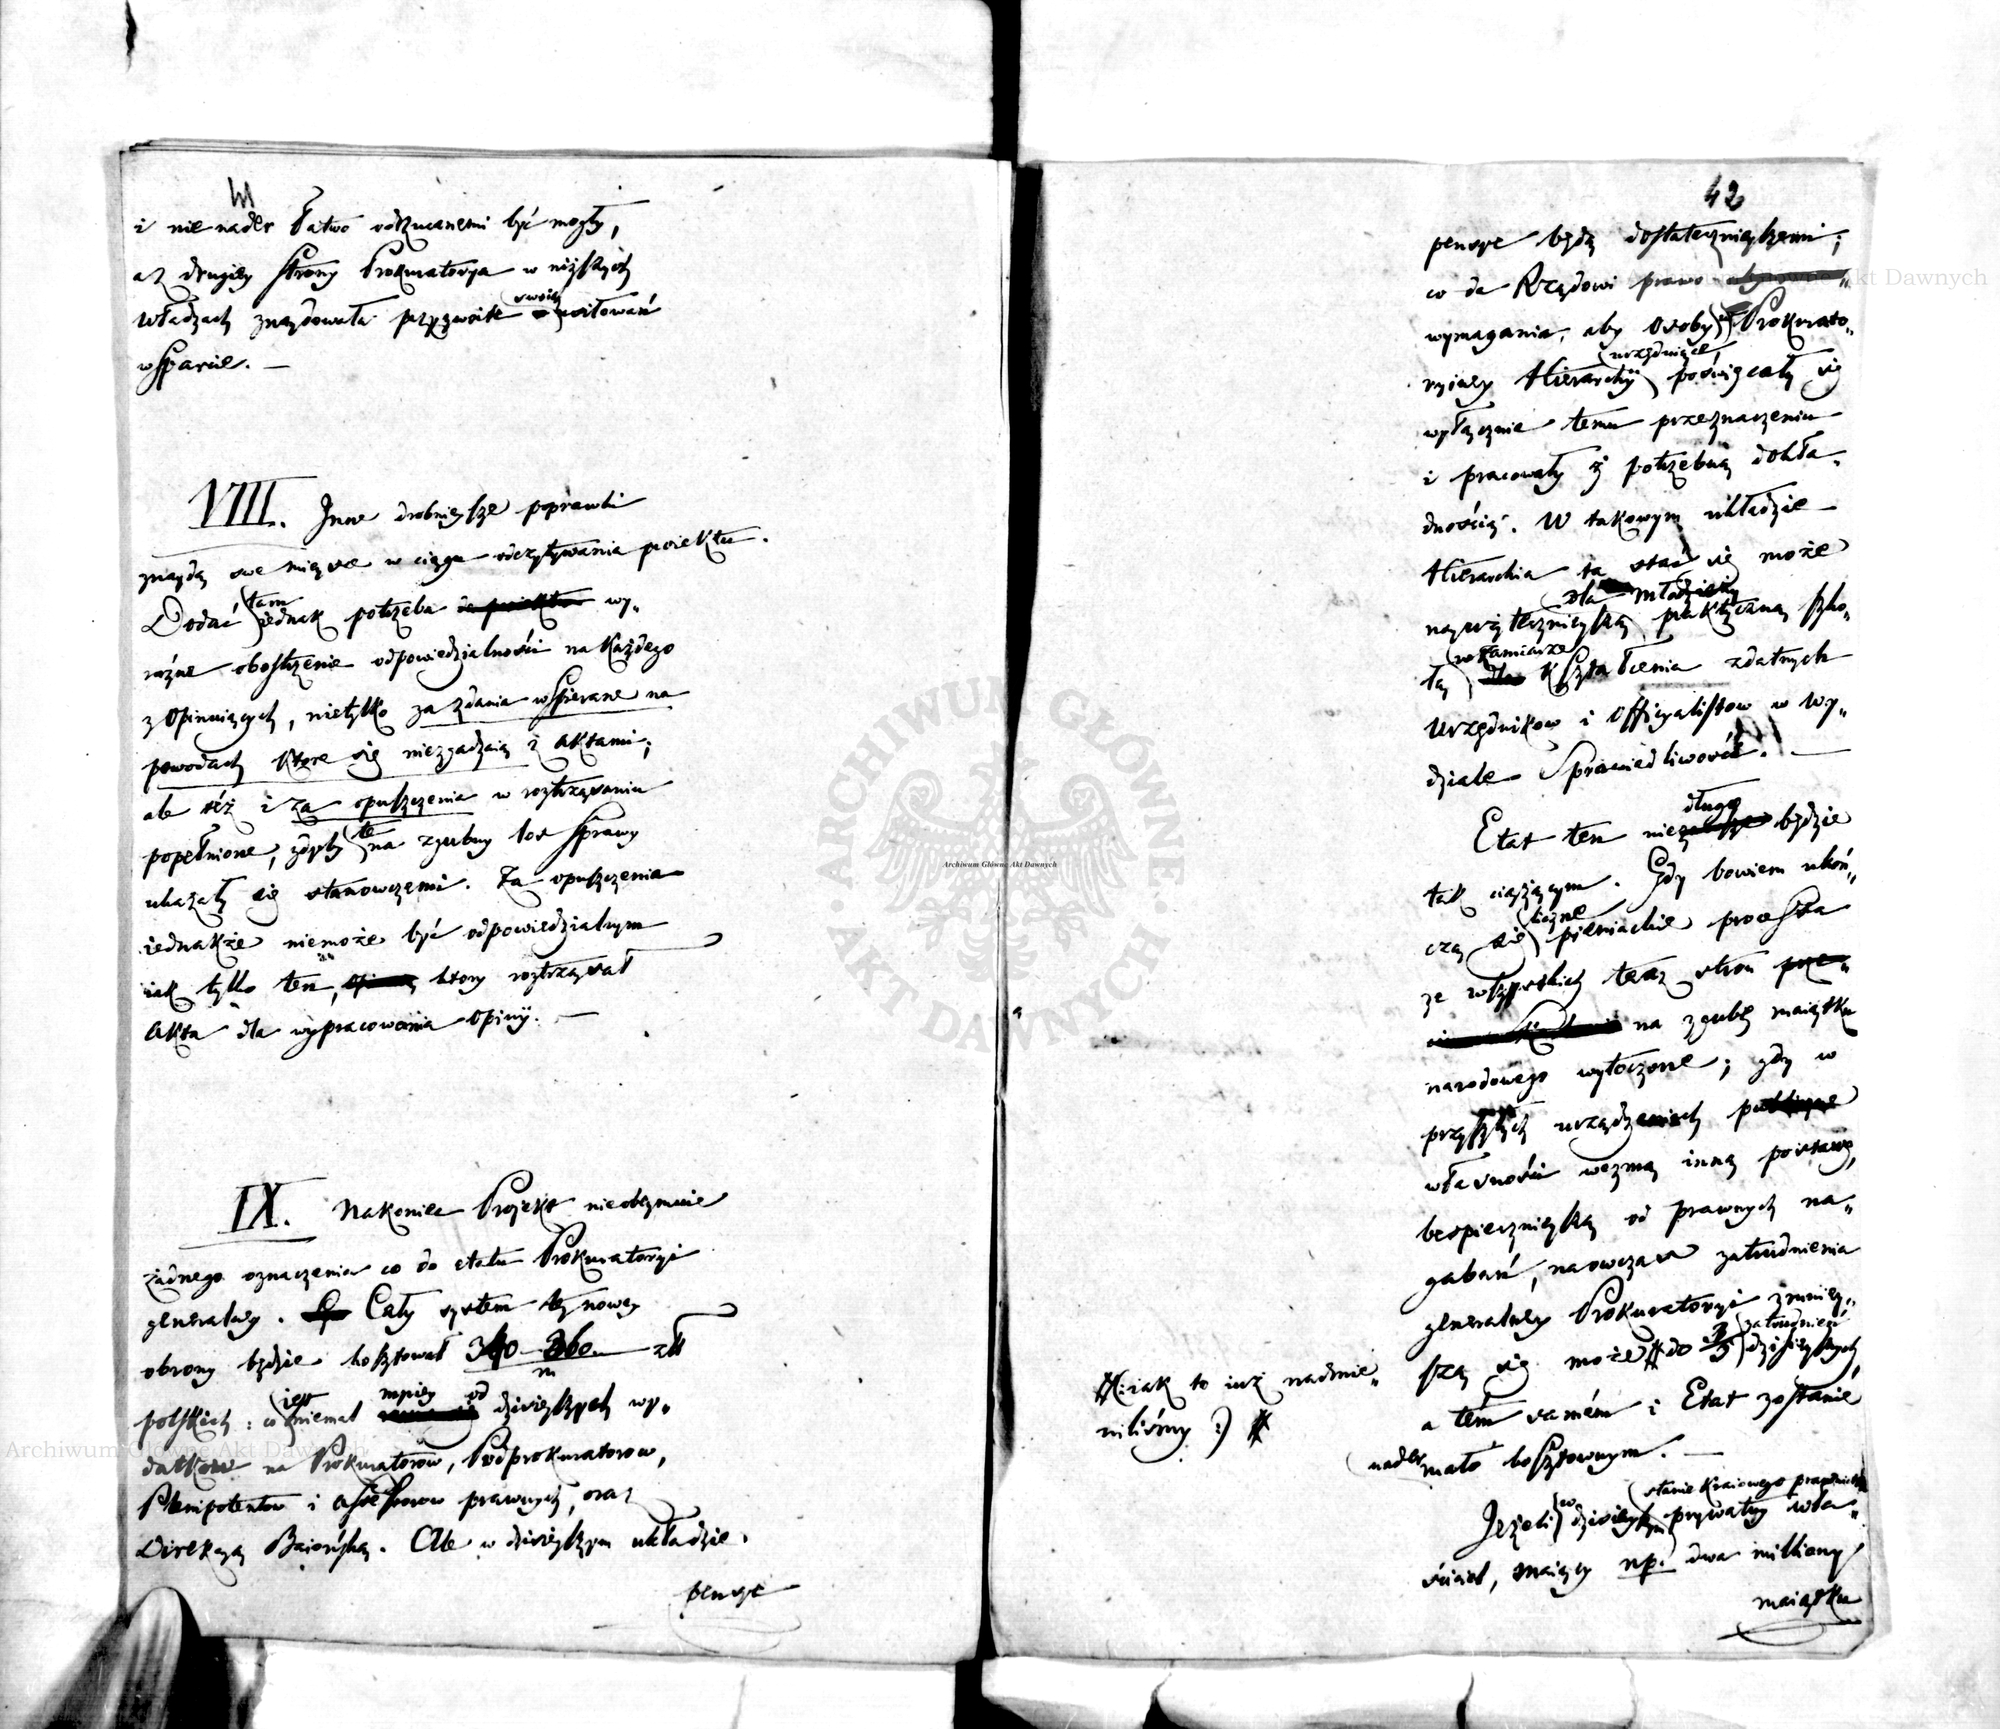 i nie nader łatwo odrzucanemi być mogły,
a z drugiey strony Prokuratorya w niższych
władzach znaydowała przyzwoite swoich usiłowań
wsparcie. —
VIII. Inne drobnieysze poprawki
znaydą swe mieysce w ciągu odczytywania proiektu.
Dodać tam iednak potrzeba do proiektu wy„
raźne obostrzenie odpowiedzialności na każdego
z Opiniuiących, nietylko za zdania wspierane na
powodach które się niezgadzaią z aktami;
ale też i za opuszczenia w roztrząsaniu
popełnione, gdyby te na zgubny los sprawy
ukazały się stanowczemi. Za opuszczenia
iednakże niemoże być odpowiedzialnym
iak tylko ten, ktory roztrząsał
akta dla wypracowania Opinij. —
IX. Nakoniec Projekt nieobeymuie
żadnego oznaczenia co do etatu Prokuratoryi
generalney. Cały system tey nowey
obrony będzie kosztował 340 360 m złł
polskich: co iest niemal mniey od dzisieyszych wy„
datkow na Prokuratorow, Podprokuratorow,
Plenipotentow i Assessorow prawnych, oraz
Direkcyą Baiońską. Ale w dzisieyszym układzie
pensye
42
pensye będą dostatecznieyszemi;
co da Rządowi prawo
wymagania, aby osoby w Prokurato„
ryiney Hierarchij urzęduiące poświęcały się
wyłącznie temu przeznaczeniu
i pracowały z potrzebną dokła„
dnością. W takowym układzie
Hierarchia ta stać się może
nayużytecznieyszą dla młodzieży praktyczną szko„
łą w zamiarze dla kształcenia zdatnych
Urzędnikow i Officyalistow w Wy„
dziale Sprawiedliwości. —
Etat ten niedługo będzie
tak ciążącym. Gdy bowiem ukoń„
czą się liczne pieniackie processa
ze wszystkich teraz stron
na zgubę maiątku
narodowego wytoczone; gdy w
przyszłych urządzeniach publiczne
własności wezmą inną postawę,
bespiecznieyszą od prawnych na„
gabań, naowczas zatrudnienia
generalney Prokuratoryi zmniey„
szą się może do 3/5 zatrudnień dzisieyszych,
(:iak to iuż nadmie„
niliśmy :)
a tém samém i Etat zostanie
nader mało kosztownym. —
Jeżeli w dzisieyszym stanie kraiowego prawnictwa prywatny wła„
ściciel, maiący np. dwa milliony
maiątku
Archiwum Główne Akt Dawnych
ARCHIWUM GŁÓWNE · AKT DAWNYCH ·
Archiwum Główne Akt Dawnych
Archiwum Główne Akt Dawnych